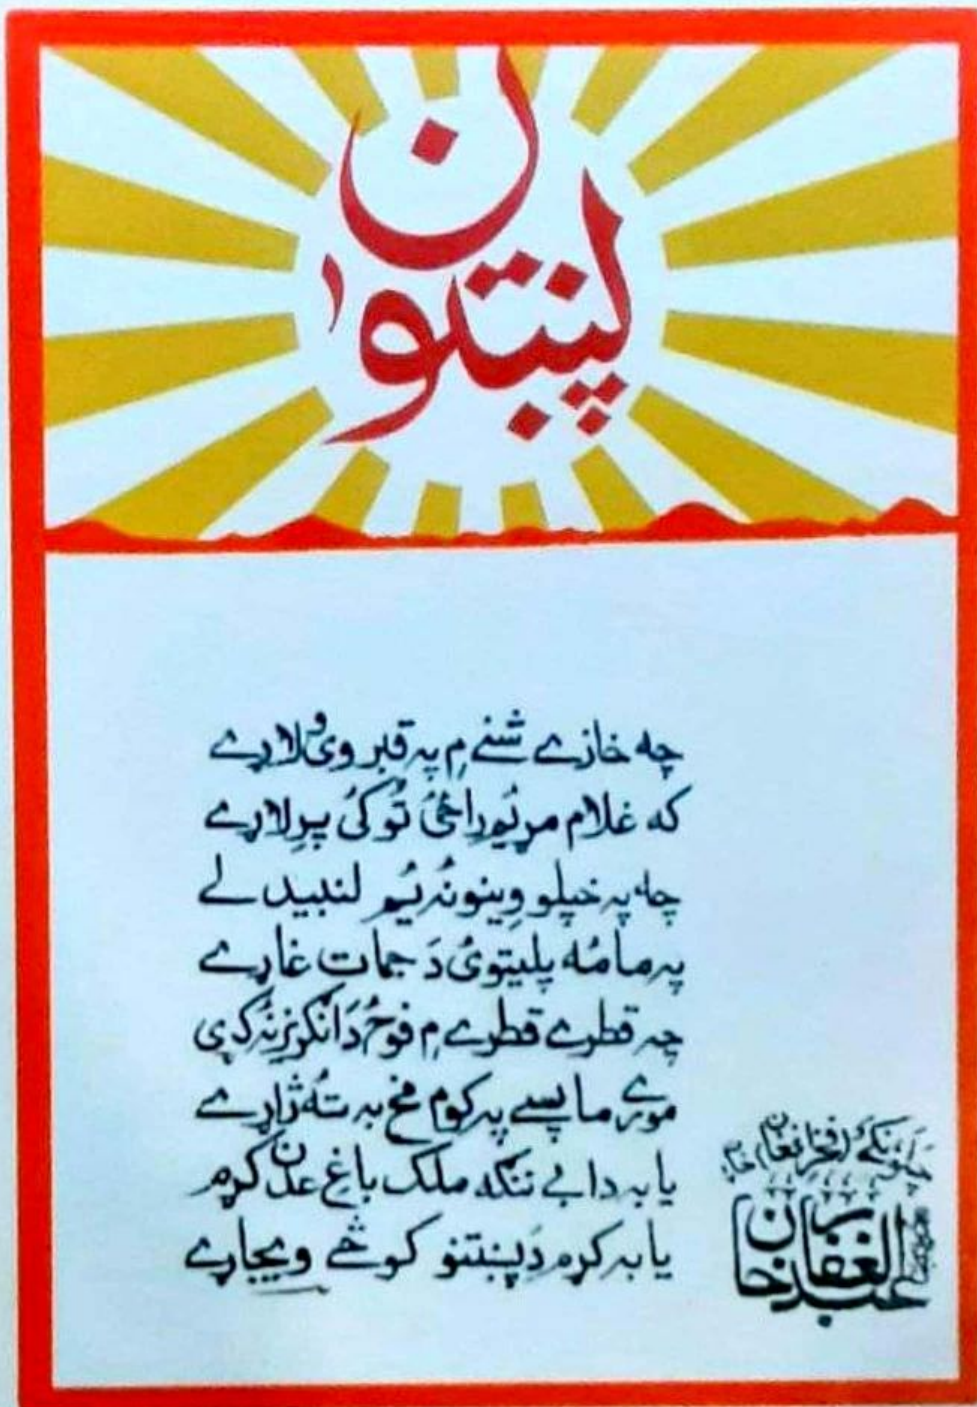 پښتون
چه خازے شنے مِ په قبر وی ولاړے
که غلام مړ یُم راځئ تُوکئ پرِ لاړے
چه په خپلو وِینو نهٔ یُم لنبیدلے
په ما مهٔ پلیتوئ دَ جمات غاړے
چه قطرے قطرے مِ فوځ دَ انګریز نهٔ کړی
مورے ما پسے په کوم مخ به تهٔ ژاړے
یا به دا بے ننګه ملک باغِ عدن کړم
یا به کړم دَ پښتنو کوڅے ویجاړے
چلوونکے (فخرِ افغان) خان
عبدالغفار خان